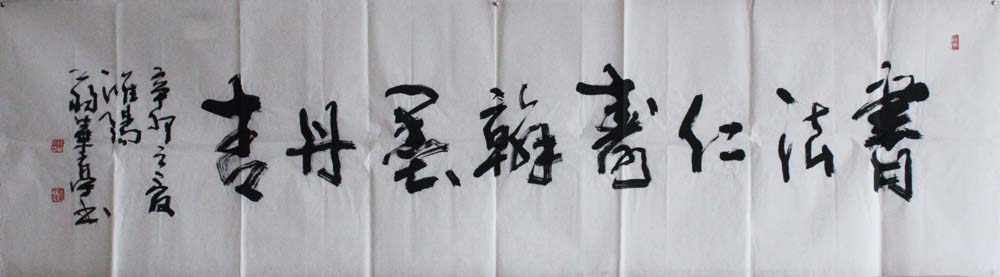 書法仁壽翰墨丹青
辛卯之夏
淮陽
翁華亭书